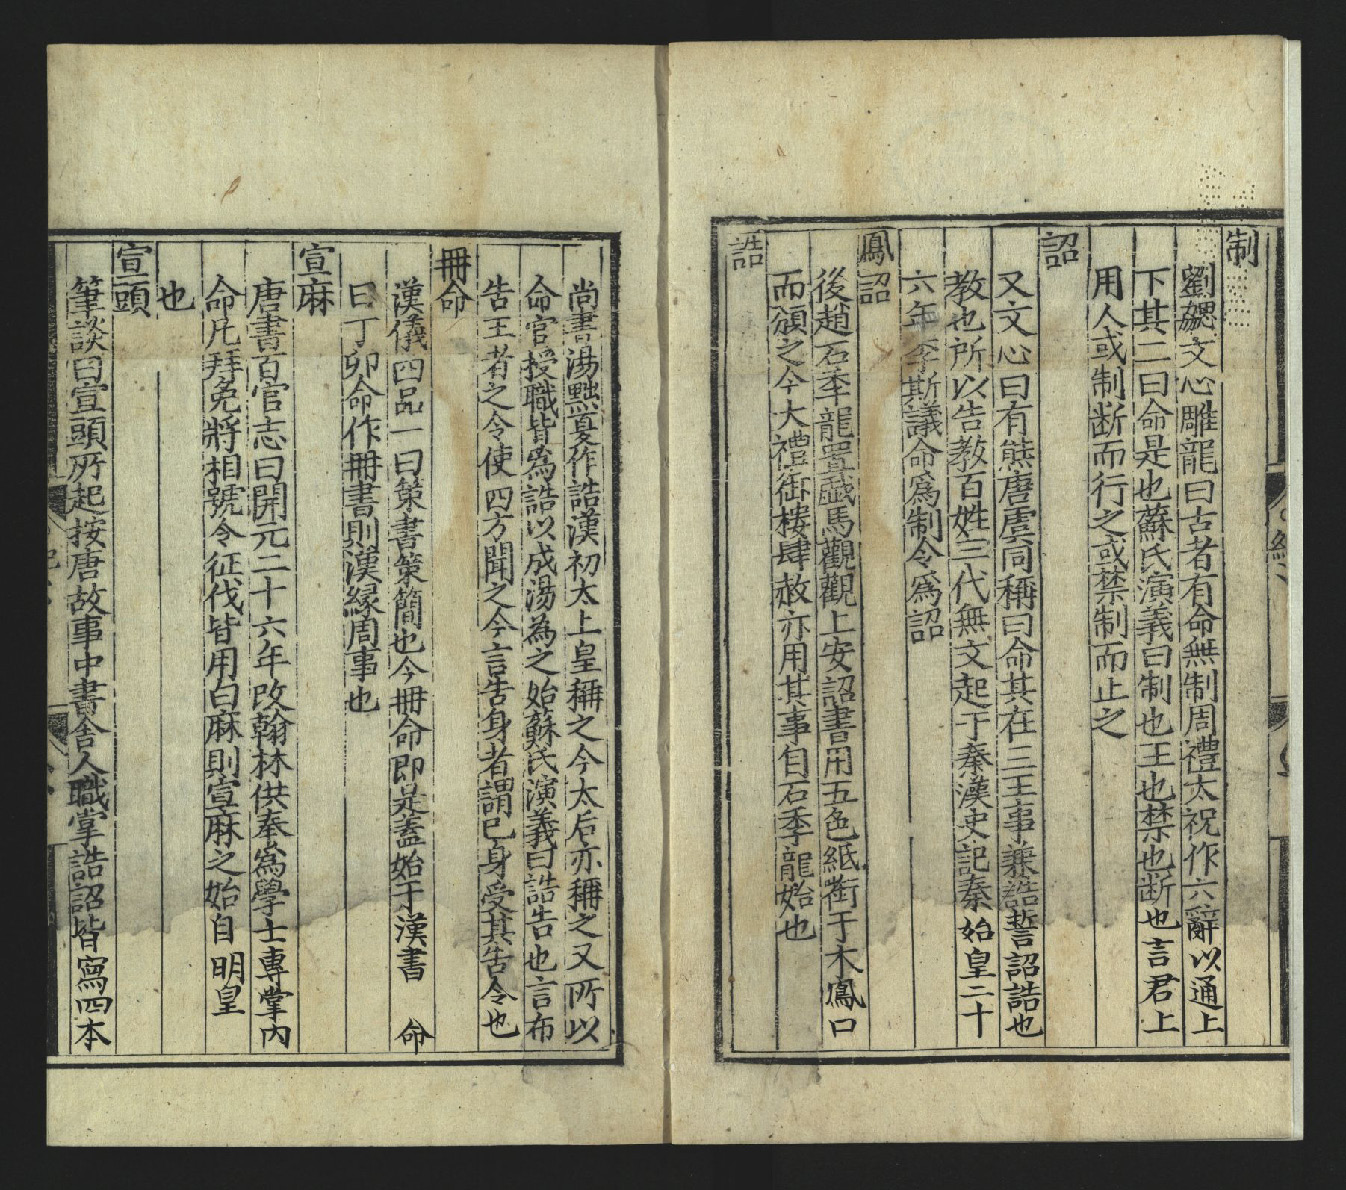 制
劉勰文心雕龍曰古者有命無制周禮太祝作六辭以通上
下其二曰命是也蘇氏演義曰制也王也禁也断也言君上
用人或制断而行之或禁制而止之
詔
又文心曰有熊唐虞同稱曰命其在三王事兼誥誓詔誥也
教也所以告教百姓三代無文起于秦漢史記秦始皇二十
六年李斯議命爲制令爲詔
鳳詔
後趙石季龍置戲馬觀觀上安詔書用五色紙銜于木鳳口
而頒之今大禮御樓肆赦亦用其事自石季龍始也
誥
尚書湯黜夏作誥漢初太上皇稱之今太后亦稱之又所以
命官授職皆爲誥以成湯為之始蘇氏演義曰誥告也言布
告王者之令使四方聞之今言告身者謂已身受其告令也
冊命
漢儀四品一曰策書策簡也今冊命即是蓋始于漢書 命
曰丁卯命作冊書則漢緣周事也
宣麻
唐書百官志曰開元二十六年改翰林供奉爲學士專掌內
命凡拜免將相號令征伐皆用白麻則宣麻之始自明皇
也
宣頭
筆談曰宣頭所起按唐故事中書舍人職掌誥詔皆寫四本